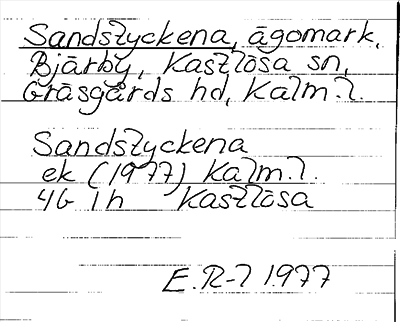 Sandstyckena, ägomark,
Bjärby, Kastlösa sn,
Gräsgårds hd, Kalm. l.
Sandstyckena
ek (1977) Kalm. l.
4G 1h Kastlösa
E. R-l 1977